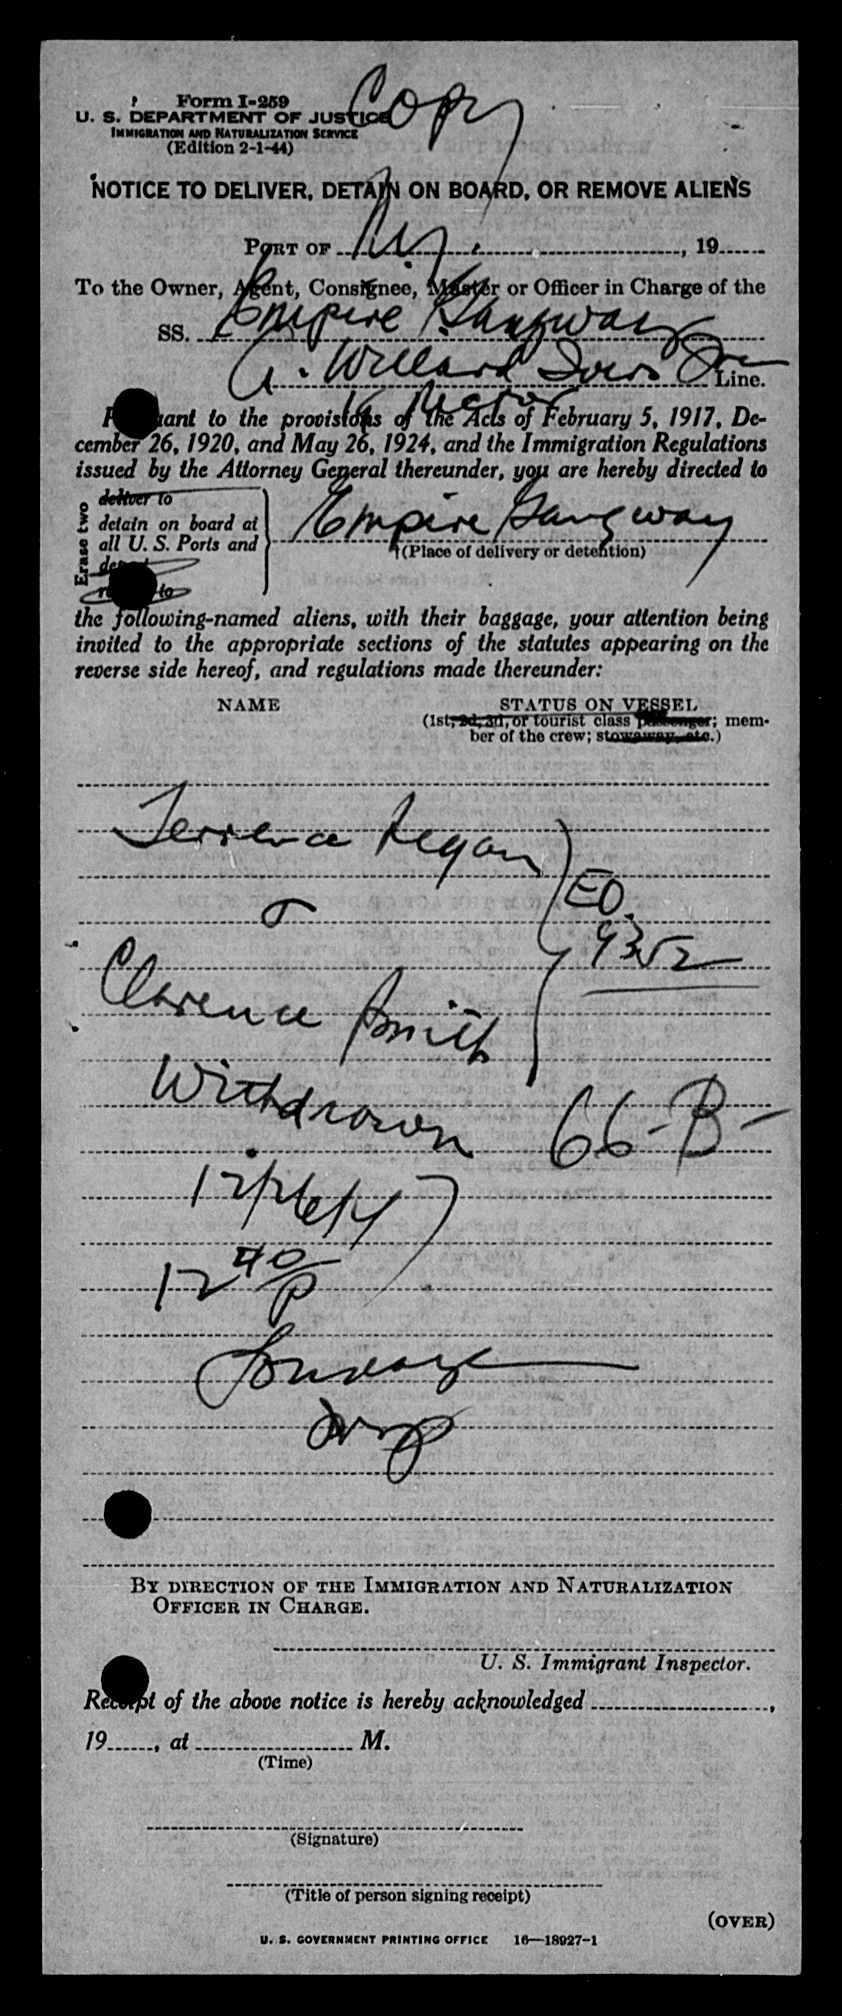 Copy
Form I-259
U. S. DEPARTMENT OF JUSTICE
IMMIGRATION AND NATURALIZATION SERVICE
(Edition 2-1-44)
NOTICE TO DELIVER, DETAIN ON BOARD, OR REMOVE ALIENS
PORT OF N.Y. , 19
To the Owner, Agent, Consignee, Master or Officer in Charge of the
SS. Empire Gangway
A. Willard Ivers Line.
17 Rector
Pursuant to the provisions of the Acts of February 5, 1917, De-
cember 26, 1920, and May 26, 1924, and the Immigration Regulations
issued by the Attorney General thereunder, you are hereby directed to
Erase two
deliver to
detain on board at
all U. S. Ports and
Empire Gangway
(Place of delivery or detention)
the following-named aliens, with their baggage, your attention being
invited to the appropriate sections of the statutes appearing on the
reverse side hereof, and regulations made thereunder:
NAME STATUS ON VESSEL
(1st, 2d, 3d, or tourist class passenger; mem-
ber of the crew; stowaway, etc.)
Terrence Regan
EO.
9352
Clarence Smith
Withdrawn 66-B-
12/26/4
12 40/P
By direction of the Immigration and Naturalization
Officer in Charge.
U. S. Immigrant Inspector.
Receipt of the above notice is hereby acknowledged ,
19 , at M.
(Time)
(Signature)
(Title of person signing receipt)
(OVER)
U. S. GOVERNMENT PRINTING OFFICE 16—18927-1